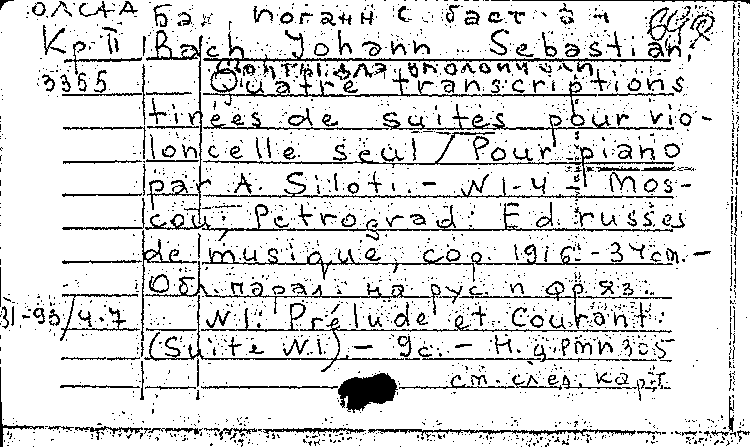 ОЛСАА Бах Иоганн Себастьян
Кр. II Bach Johann Sebastian.
3355 Quatre transcriptions
tirées de suites pour vio-
loncelle seul / Pour piano
par A. Siloti. - N 1-4 - Mos-
cou; Petrograd: Ed. russes
de musique, cop. 1916. - 34 cm. -
Обл. парал. на рус. и фр. яз.
31-93/4.7 N 1. Prélude et Courant.
(Suite N 1). - 9 с. - Н. д. РМИ 305
см. след. карт.